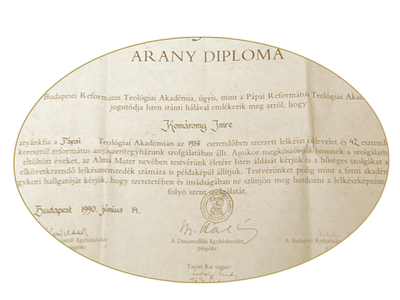 ARANY DIPLOMA
Budapesti Református Teológiai Akadémia, úgyis, mint a Pápai Református Teológiai Akadé
jogutódja Isten iránti hálával emlékezik meg arról, hogy
Komáromy Imre
atyánkfia a Pápai Teológiai Akadémián az 1937 esztendőben szerzett lelkészi oklevelet és 42 esztend
keresztül református anyaszentegyházunk szolgálatában állt. Amikor megköszönjük Istennek a szolgálatb
eltöltött éveket, az Alma Mater nevében testvérünk életére Isten áldását kérjük és a hűséges szolgálat
elkövetkezendő lelkésznemzedék számára is példaképül állítjuk. Testvérünket pedig mint a fenti akadém
gykori hallgatóját kérjük, hogy szeretetében és imádságában ne szűnjön meg hordozni a lelkészképzés
folyó szent szolgálatát.
Budapest 1990. június
A Dunamelléki Egyházkerület
püspöke
A Budapesti Reform
Tanári Kar tagjai: